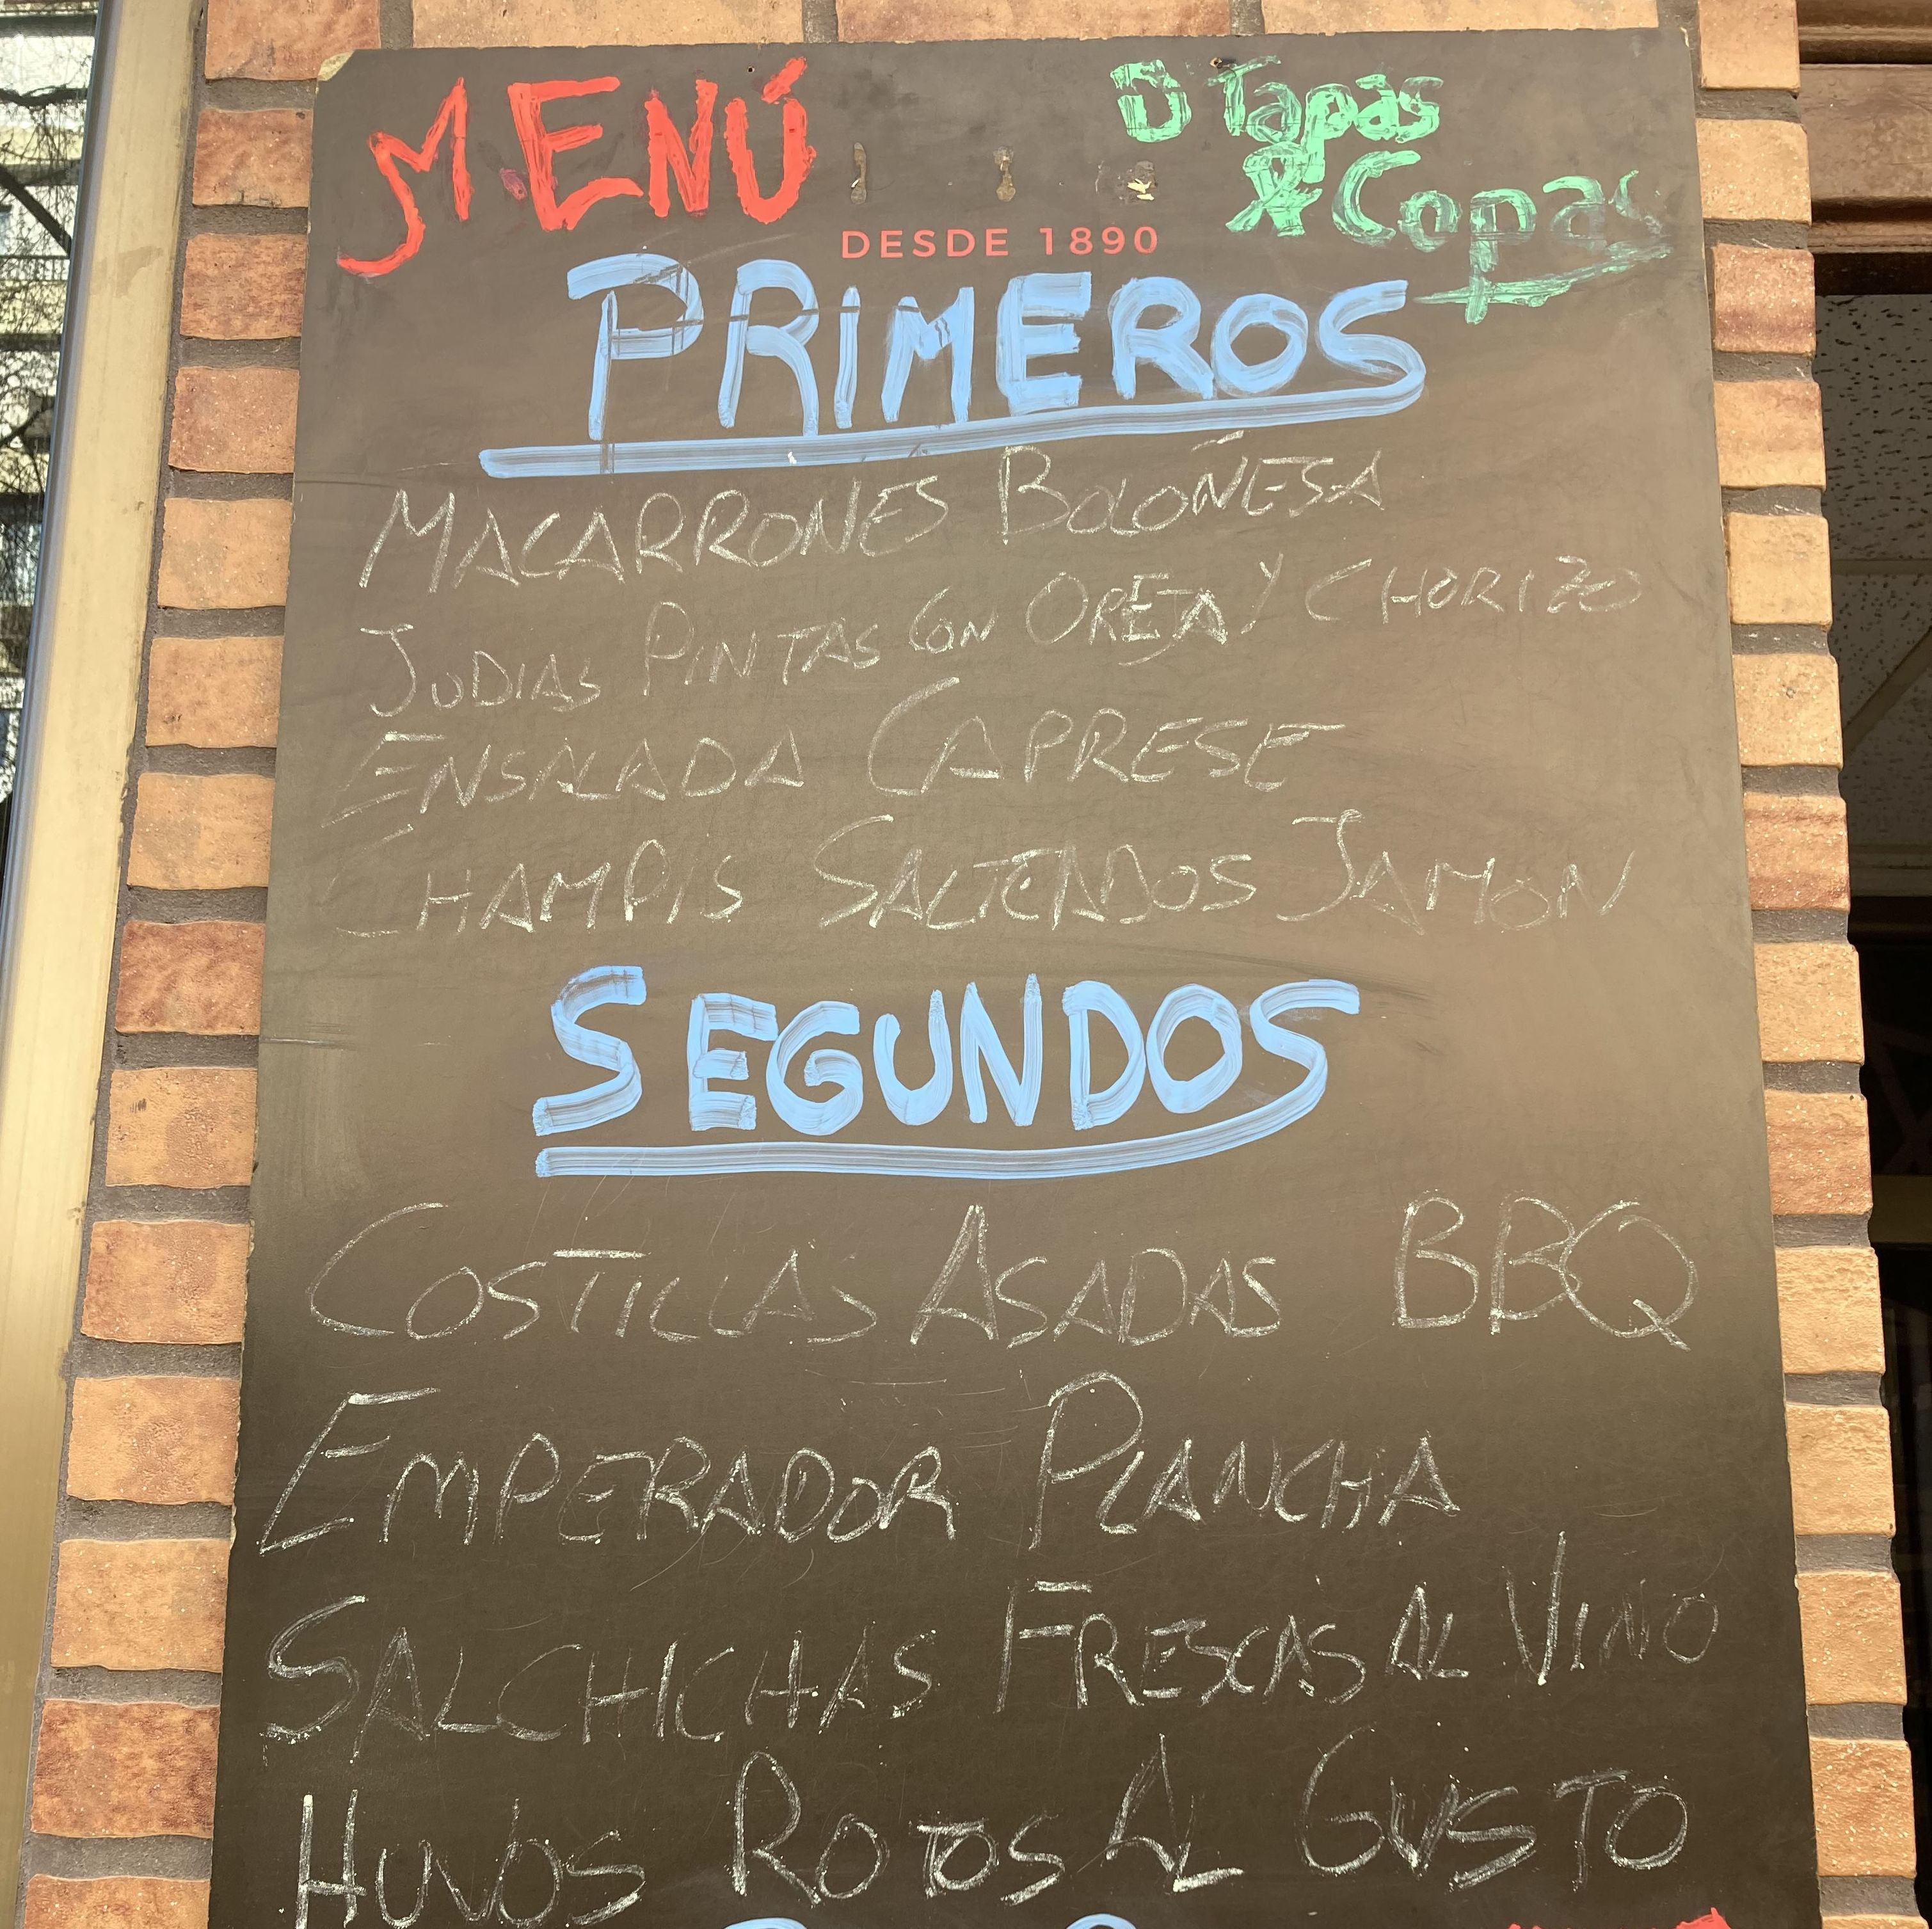 MENÚ
D Tapas
& Copas
DESDE 1890
PRIMEROS
MACARRONES BOLOÑESA
JUDIAS PINTAS CON OREJA Y CHORIZO
ENSALADA CAPRESE
CHAMPIS SALTEADOS JAMON
SEGUNDOS
COSTILLAS ASADAS BBQ
EMPERADOR PLANCHA
SALCHICHAS FRESCAS AL VINO
HUVOS ROTOS AL GUSTO